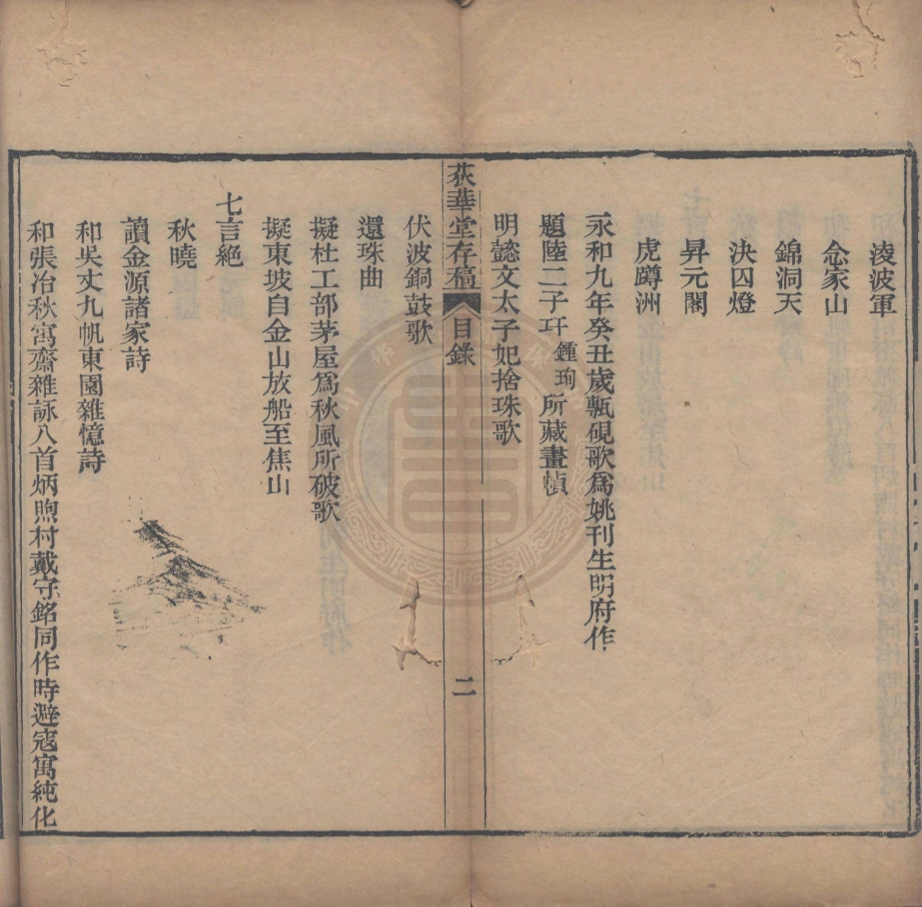 淩波軍
念家山
錦洞天
決囚燈
昇元閣
虎蹲洲
永和九年癸丑歲甎硯歌爲姚刊生明府作
題陸二子玕鍾珣所藏畫幀
明懿文太子妃捨珠歌
荻華堂存稿 目錄 二
伏波銅鼓歌
還珠曲
擬杜工部茅屋爲秋風所破歌
擬東坡自金山放船至焦山
七言絶
秋曉
讀金源諸家詩
和吳丈九帆東園雜憶詩
和張冶秋寓齋雜詠八首炳煦村戴守銘同作時避寇寓純化